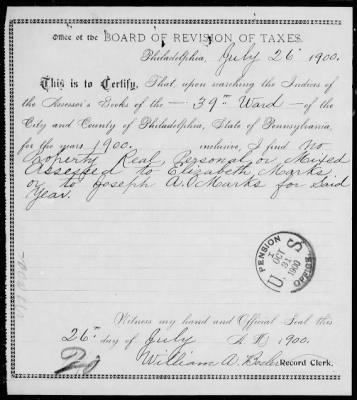 Office of the BOARD OF REVISION OF TAXES.
Philadelphia, July 26 1900.
This is to Certify, That, upon searching the Indices of
the Assessor's Books of the — 39th Ward — of the
City and County of Philadelphia, State of Pennsylvania,
for the years 1900. inclusive, I find No
Property Real, Personal, or Mixed
Assessed to Elizabeth Marks
or to Joseph A. Marks for Said
Year.
U. S. PENSION OFFICE
OCT
31
1900
Witness my hand and Official Seal this
26th day of July A. D. 1900.
William A. Record Clerk.